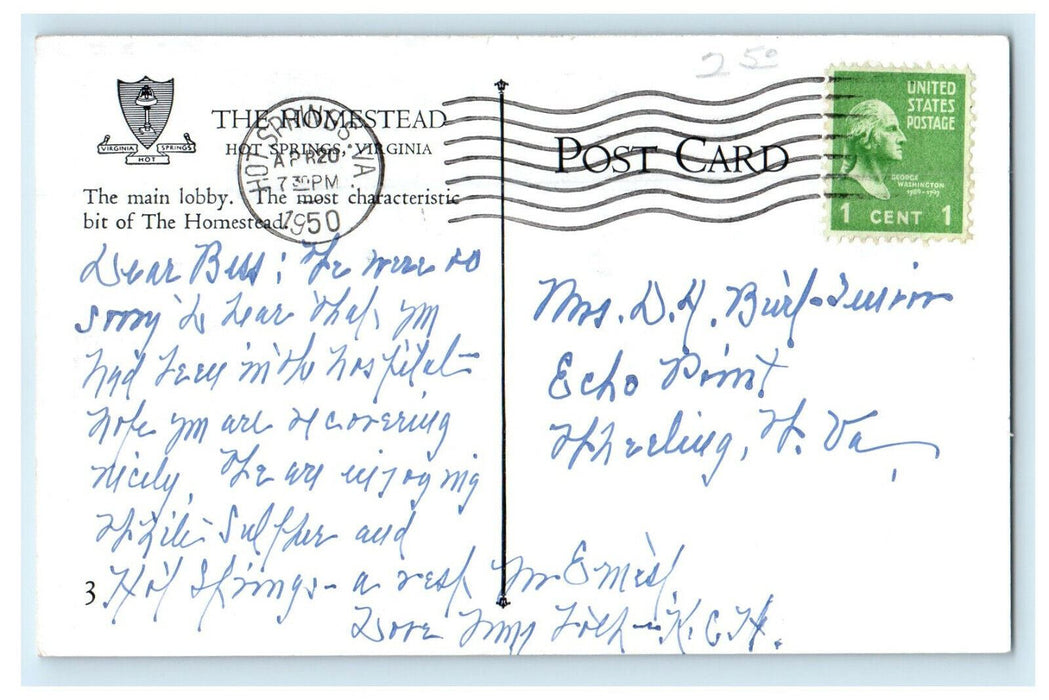 2 50
THE HOMESTEAD
HOT SPRINGS, VIRGINIA
VIRGINIA SPRINGS
HOT
HOT SPRINGS, VA
APR 20
7 30 PM
1950
The main lobby. The most characteristic
bit of The Homestead.
POST CARD
UNITED
STATES
POSTAGE
GEORGE
WASHINGTON
1789-1797
1 CENT 1
Dear Bess: We were so
sorry to hear that you
had been in the hospital
hope you are recovering
nicely. We are enjoying
White Sulpher and
Hot Springs - a rest for Ernest
Love K.C.H.
3
Mrs. D. H.
Echo Point
Wheeling, W. Va.